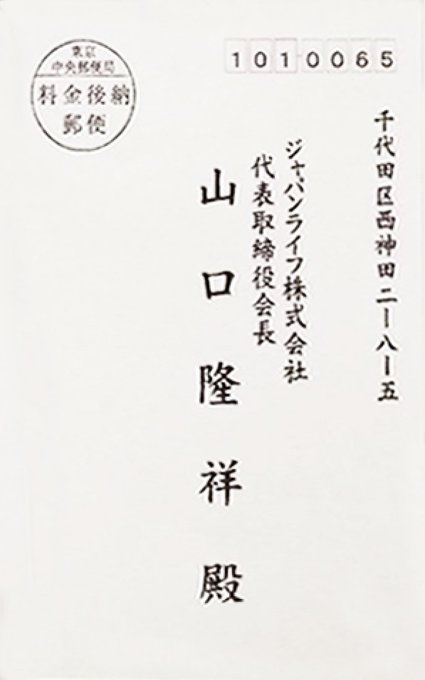 東京
中央郵便局
料金後納
郵便
1010065
千代田区西神田二ー八ー五
ジャパンライフ株式会社
代表取締役会長
山口隆祥殿